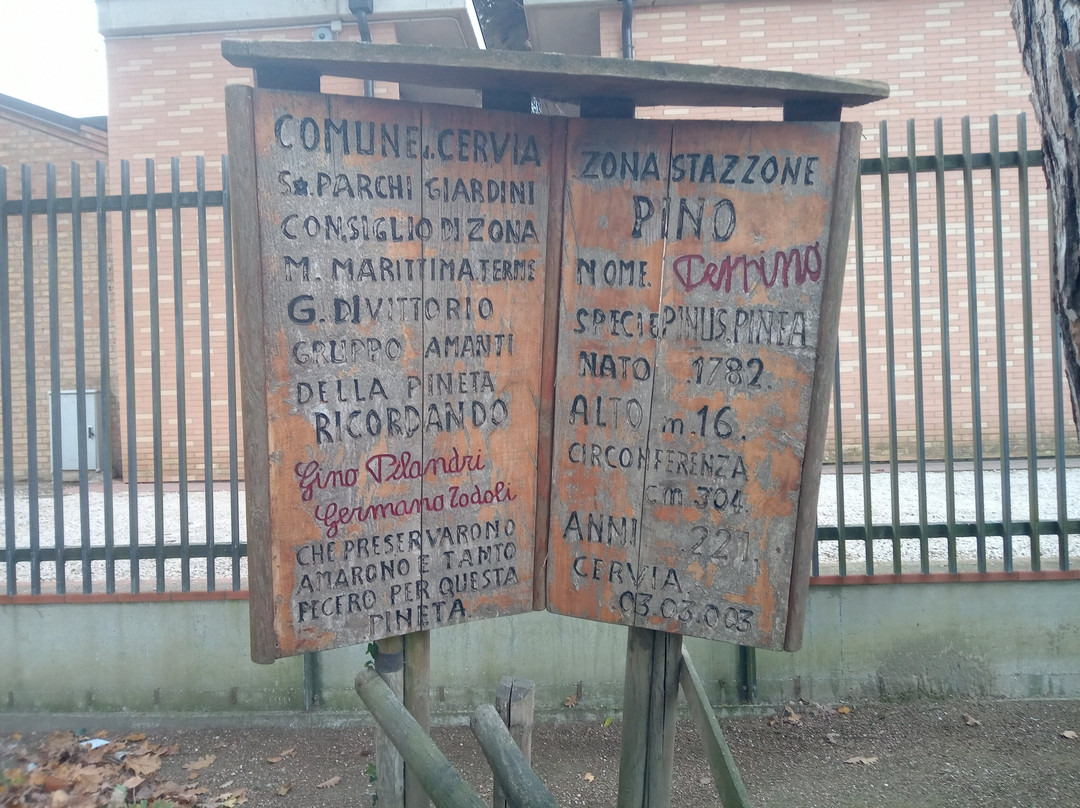 COMUNE di CERVIA
S. PARCHI GIARDINI
CONSIGLIO DI ZONA
M. MARITTIMA.TERME
G. DI VITTORIO
GRUPPO AMANTI
DELLA PINETA
RICORDANDO
Gino Pilandri
Germano Todoli
CHE PRESERVARONO
AMARONO E TANTO
FECERO PER QUESTA
PINETA
ZONA STAZZONE
PINO
NOME.
SPECIE PINUS.PINEA
NATO 1782
ALTO m.16.
CIRCONFERENZA
cm.304.
ANNI .221.
CERVIA.
03.03.003